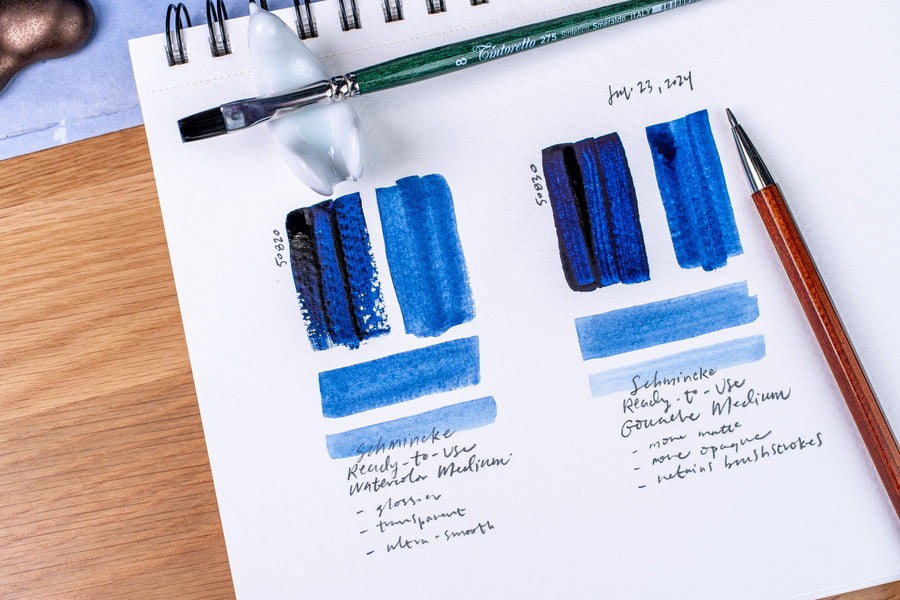 8 Tintoretto 275 Sintetico Smeraldo ITALY
July 23, 2024
50820
50830
Schmincke
Ready-to-Use
Watercolor Medium
- glossier
- transparent
- ultra-smooth
Schmincke
Ready-to-Use
Gouache Medium
- more matte
- more opaque
- retains brushstrokes